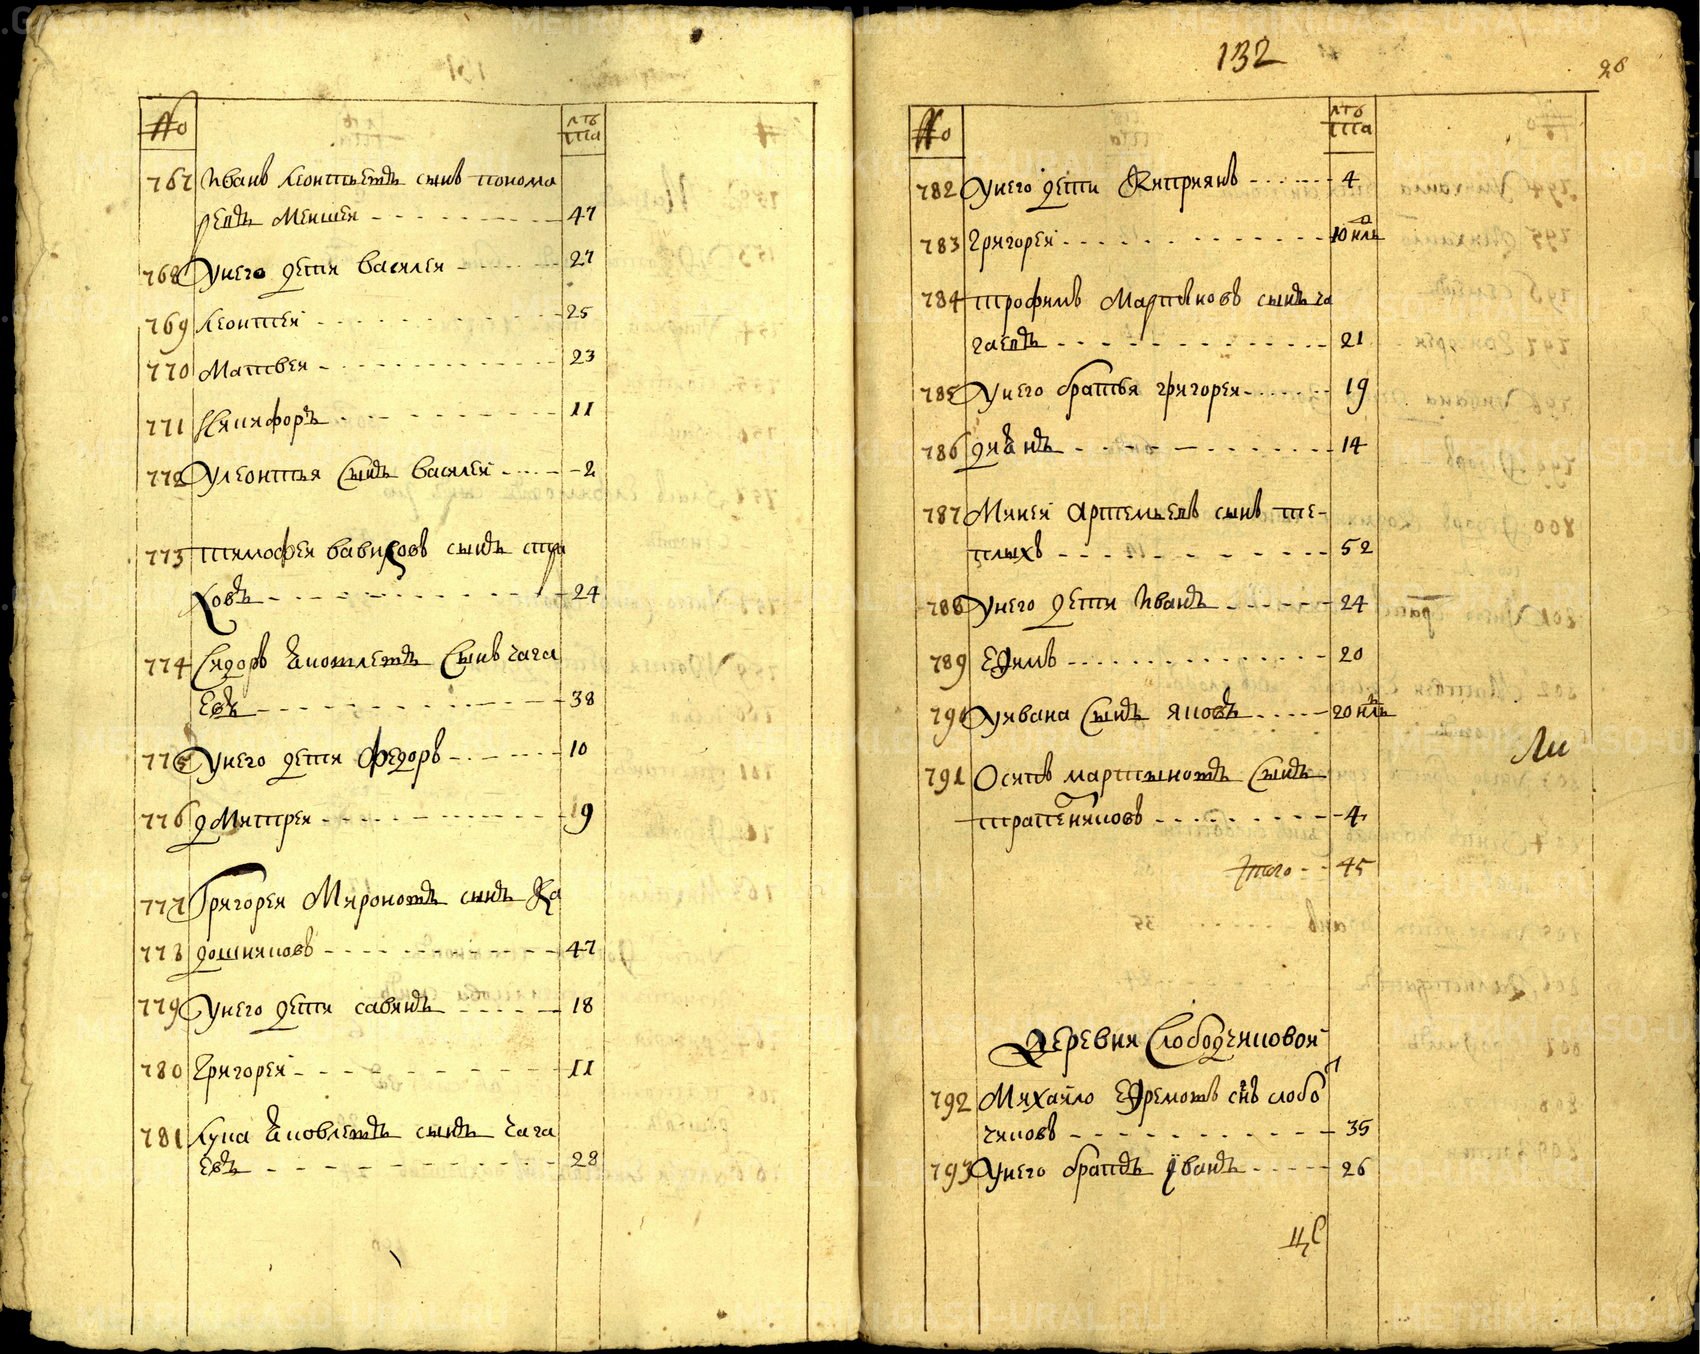 №
лѣ
та
767 Иванъ Леонтьевъ сынъ понома
ревъ меншеи 47
768 У него дети Василеи 27
769 Леонтеи 25
770 Матвеи 23
771 Никифоръ 11
772 У Леонтья сынъ Василеи 2
773 Тимофеи Вавиловъ сынъ стра
ховъ 24
774 Сидоръ Яковлевъ сынъ чага
евъ 38
775 У него дети Федоръ 10
776 Дмитреи 9
777 Григореи Мироновъ сынъ Ка
778 дошниковъ 47
779 У него дети Савинъ 18
780 Григореи 11
781 Лука Яковлевъ сынъ чага
евъ 28
132
26
№
лѣ
та
782 У него дети Киприянъ 4
783 Григореи 10 ндль
784 Трофимъ Мартиновъ сынъ ча
гаевъ 21
785 У него братья Григореи 19
786 14
787 Михеи Артемьевъ сынъ те-
плыхъ 52
788 У него дети Иванъ 24
789 Ефимъ 20
790 У Ивана сынъ Яковъ 20 ндль
791 Осипъ Мартыновъ сынъ
трапезниковъ 4
Итого 45
Деревни Слободчиковой
792 Михайло Ефремовъ снъ слобо
чиковъ 35
793 У него братъ Ӏванъ 26